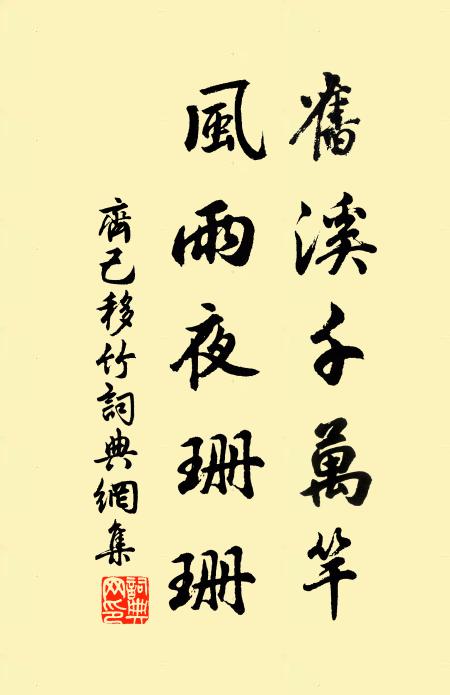 舊溪千萬竿
風雨夜珊珊
齊己移竹詞典網集
詞典網印